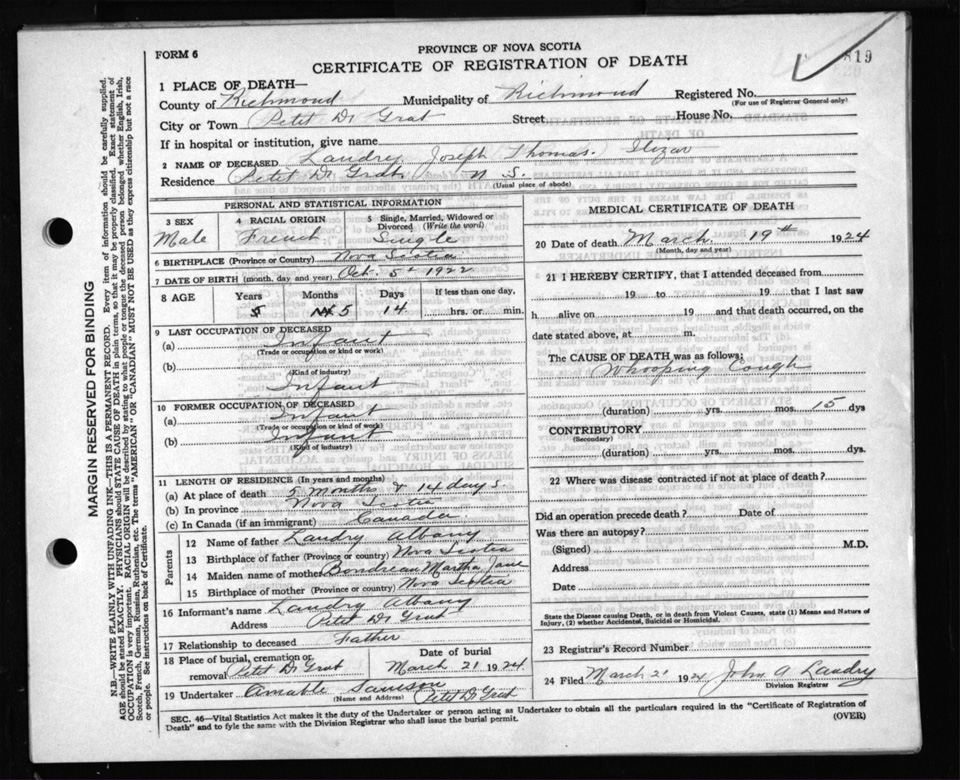 PROVINCE OF NOVA SCOTIA
FORM 6
CERTIFICATE OF REGISTRATION OF DEATH
819
1 PLACE OF DEATH—
County of Richmond Municipality of Richmond Registered No.
(For use of Registrar General only)
City or Town Petit De Grat Street House No.
If in hospital or institution, give name
2 NAME OF DECEASED Landry Joseph Thomas.
Residence Petit De Grat N. S.
(Usual place of abode)
PERSONAL AND STATISTICAL INFORMATION
3 SEX 4 RACIAL ORIGIN 5 Single, Married, Widowed or Divorced (Write the word)
Male French Single
6 BIRTHPLACE (Province or Country) Nova Scotia
7 DATE OF BIRTH (month, day and year) Oct. 5 1922
8 AGE Years Months Days If less than one day,
5 14 hrs. or min.
9 LAST OCCUPATION OF DECEASED
(a) Infant
(Trade or occupation or kind or work)
(b)
(Kind of industry)
Infant
10 FORMER OCCUPATION OF DECEASED
(a) Infant
(Trade or occupation or kind or work)
(b) Infant
(Kind of industry)
11 LENGTH OF RESIDENCE (In years and months)
(a) At place of death 5 months & 14 days
(b) In province Nova Scotia
(c) In Canada (if an immigrant) Canada
Parents
12 Name of father Landry Albany
13 Birthplace of father (Province or country) Nova Scotia
14 Maiden name of mother Boudreau Martha Jane
15 Birthplace of mother (Province or country) Nova Scotia
16 Informant's name Landry Albany
Address Petit De Grat
17 Relationship to deceased Father
18 Place of burial, cremation or removal Petit De Grat Date of burial March 21 1924
19 Undertaker Amable Samson Petit De Grat
(Name and Address)
MEDICAL CERTIFICATE OF DEATH
20 Date of death March 19th 1924
(Month, day and year)
21 I HEREBY CERTIFY, that I attended deceased from
19 to 19 that I last saw
h alive on 19 and that death occurred, on the
date stated above, at m.
The CAUSE OF DEATH was as follows:
Whooping Cough
(duration) yrs. mos. 15 dys
CONTRIBUTORY
(Secondary)
(duration) yrs. mos. dys.
22 Where was disease contracted if not at place of death?
Did an operation precede death? Date of
Was there an autopsy?
(Signed) M.D.
Address
Date
State the Disease causing Death, or in death from Violent Causes, state (1) Means and Nature of
Injury, (2) whether Accidental, Suicidal or Homicidal.
23 Registrar's Record Number
24 Filed March 21 1924 John A Landry
Division Registrar
SEC. 46—Vital Statistics Act makes it the duty of the Undertaker or person acting as Undertaker to obtain all the particulars required in the "Certificate of Registration of
Death" and to fyle the same with the Division Registrar who shall issue the burial permit. (OVER)
MARGIN RESERVED FOR BINDING
N.B.—WRITE PLAINLY WITH UNFADING INK—THIS IS A PERMANENT RECORD. Every item of information should be carefully supplied.
AGE should be stated EXACTLY. PHYSICIANS should STATE CAUSE OF DEATH in plain terms, so that it may be properly classified. Exact statement of
OCCUPATION is very important. RACIAL ORIGIN will be described by stating to what people or tongue the deceased person belonged whether English, Irish,
Scotch, French, German, Russian, Ruthenian, etc. The terms "AMERICAN" OR "CANADIAN" MUST NOT BE USED as they express citizenship but not a race
or people. See instructions on back of Certificate.